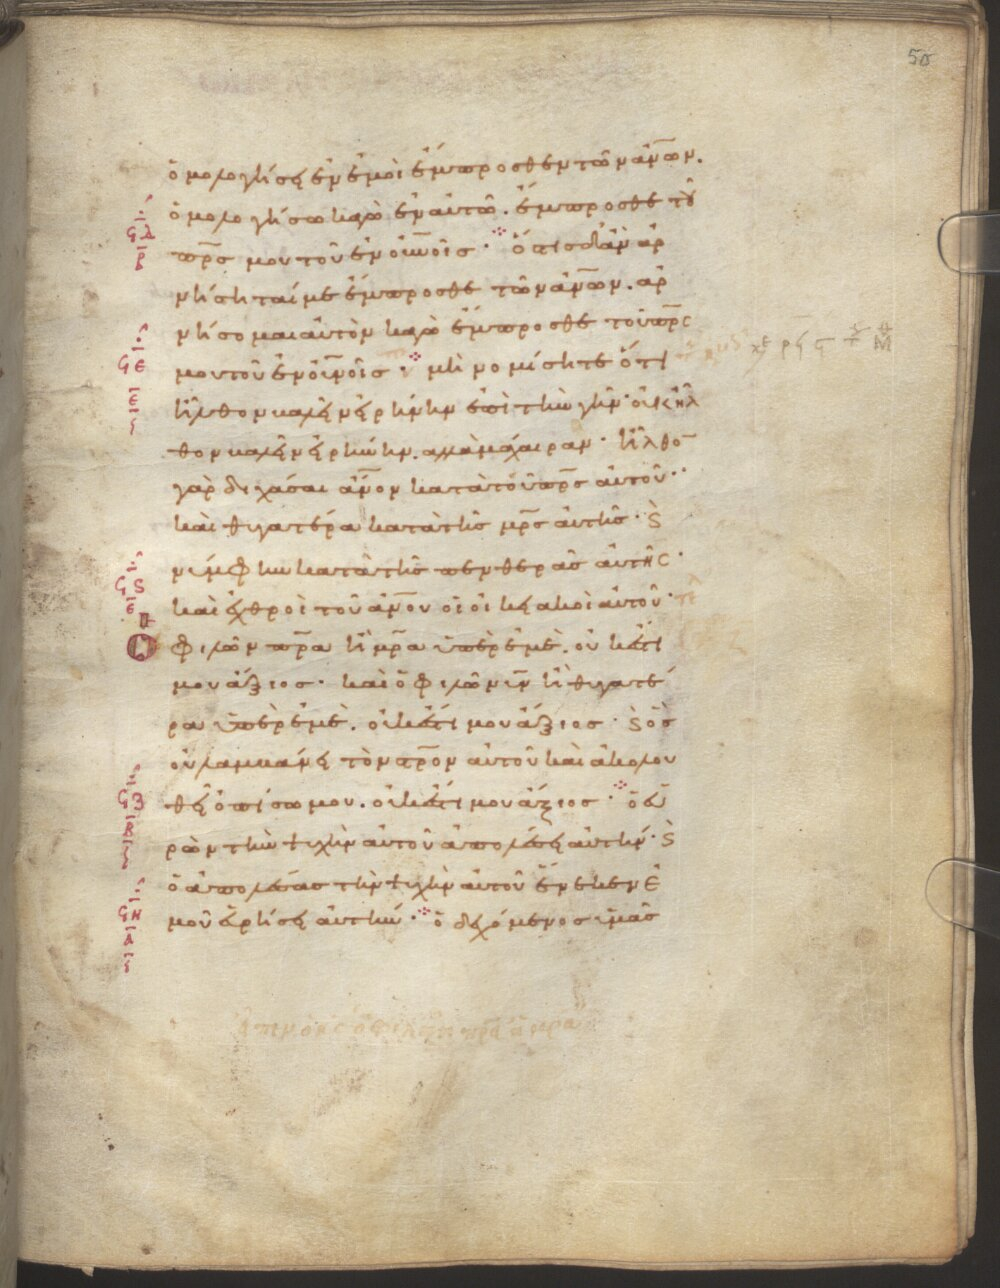 50
ὁμολογήσει ἐν ἐμοὶ ἔμπροσθεν τῶν ἀν̅ων.
ὁμολογήσω καγὼ ἐν αυτῶ. ἔμπροσθε τοῦ
πρ̅ς μου τοῦ ἐν οὐν̅οῖς · ὅστις δ' ἂν ἀρ
νήσηταί με ἔμπροσθε τῶν ἀν̅ων. ἀρ
νήσομαι αυτὸν καγὼ ἔμπροσθε τοῦ πρ̅ς
μου τοῦ ἐν οὐν̅οῖς · μὴ νομίσητε ὅτι
ἦλθον βαλεῖν εἰρήνην ἐπὶ τὴν γῆν · οὐκ ἦλ
θον βαλεῖν εἰρήνην. ἀλλὰ μάχαιραν · ἦλθο̅
γὰρ διχάσαι ἄν̅ον κατὰ τοῦ πρ̅ς αυτοῦ ·
καὶ θυγατέρα κατὰ τῆς μρ̅ς αὐτῆς · ϛ̀
νύμφην κατὰ τῆς πενθερᾶς αὐτῆς ·
καὶ ἐχθροὶ τοῦ ἀν̅ου οἱ οικειακοὶ αυτοῦ ·
Ὁ φιλῶν πρ̅α ἢ μρ̅α ὑπὲρ ἐμὲ. οὐκ ἔστι
μου ἄξιος · καὶ ὁ φιλῶν υἱν̅ ἢ θυγατέ
ρα ὑπὲρ ἐμὲ. οὐκ ἔστι μου ἄξιος · ϛ̀ ὃς
οὐ λαμβάνει τὸν στρ̅ον αὐτοῦ καὶ ἀκολου
θεῖ ὀπίσω μου. οὐκ ἔστι μου ἄξιος · ὁ εὑ
ρὼν τὴν ψυχὴν αὐτοῦ ἀπολέσει αὐτήν · ϛ̀
ὁ ἀπολέσας τὴν ψυχὴν αὐτοῦ ἕνεκεν ἐ
μοῦ εὑρήσει αὐτήν · ὁ δεχόμενος ὑμᾶς